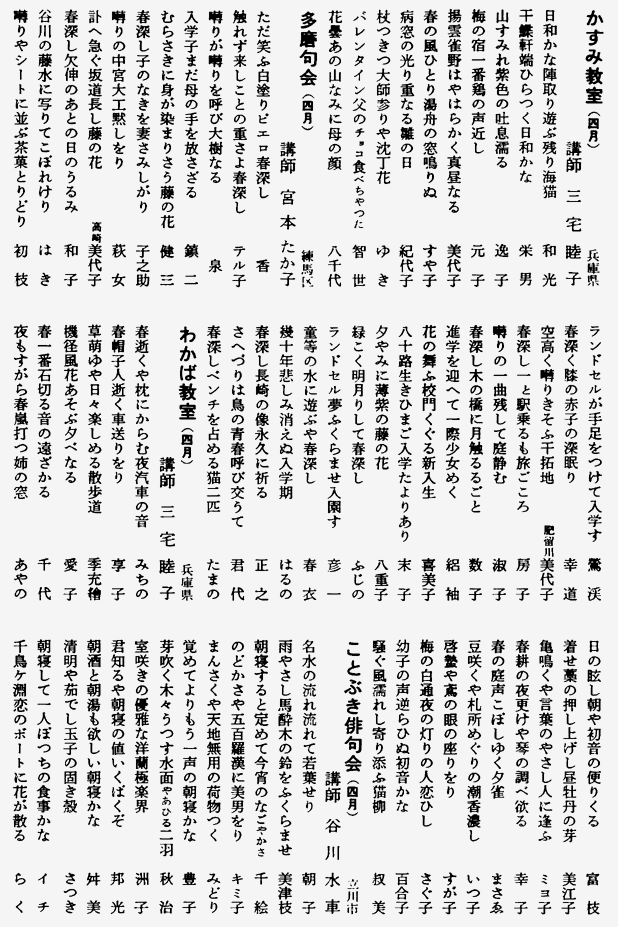 かすみ教室(四月)
兵庫県
講師 三宅睦子
日和かな陣取り遊ぶ残り海猫 和光
干鱶軒端ひらつく日和かな 栄男
山すみれ紫色の吐息濡る 逸子
梅の宿一番鶏の声近し 元子
揚雲雀野はやはらかく真昼なる 美代子
春の風ひとり湯舟の窓鳴りぬ すや子
病窓の光り重なる雛の日 紀代子
杖つきつ大師参りや沈丁花 ゆき
バレンタイン父のチョコ食べちゃつた 智世
花曇あの山なみに母の顔 八千代
多磨句会(四月)
練馬区
講師 宮本たか子
ただ笑ふ白塗りピエロ春深し 香
触れず来しことの重さよ春深し テル子
囀りが囀りを呼び大樹なる 泉
入学子まだ母の手を放さざる 鎮二
むらさきに身が染まりさう藤の花 健三
春深し子のなきを妻さみしがり 子之助
囀りの中宮大工黙しをり 萩女
訃へ急ぐ坂道長し藤の花 高崎 美代子
春深し欠伸のあとの日のうるみ 和子
谷川の藤水に写りてこぼれけり はき
囀りやシートに並ぶ茶菓とりどり 初枝
ランドセルが手足をつけて入学す 鶯渓
春深く膝の赤子の深眠り 幸道
空高く囀りきそふ干拓地 肥留川 美代子
春深し一と駅乗るも旅ごころ 房子
囀りの一曲残して庭静む 淑子
春深し木の橋に月触るるごと 数子
進学を迎へて一際少女めく 絽袖
花の舞ふ校門くぐる新入生 喜美子
八十路生きひまご入学たよりあり 末子
夕やみに薄紫の藤の花 八重子
緑こく明月りして春深し ふじの
ランドセル夢ふくらませ入園す 彦一
童等の水に遊ぶや春深し 春衣
幾十年悲しみ消えぬ入学期 はるの
春深し長崎の像永久に祈る 正之
さへづりは鳥の青春呼び交うて 君代
春深しベンチを占める猫二匹 たまの
わかば教室(四月)
兵庫県
講師 三宅睦子
春逝くや枕にからむ夜汽車の音 みちの
春帽子人逝く車送りをり 享子
草萌ゆや日々楽しめる散歩道 季充繪
機径風花あそぶ夕べなる 愛子
春一番石切る音の遠ざかる 千代
夜もすがら春嵐打つ姉の窓 あやの
日の眩し朝や初音の便りくる 富枝
着せ藁の押し上げし昼牡丹の芽 美江子
亀鳴くや言葉のやさし人に逢ふ ミヨ子
春耕の夜更けや琴の調べ欲る 幸子
春の庭声こぼしゆく夕雀 まさゑ
豆咲くや札所めぐりの潮香濃し いつ子
啓蟄や鳶の眼の座りをり すが子
梅の白通夜の灯りの人恋ひし さぐ子
幼子の声逆らひぬ初音かな 百合子
騒ぐ風濡れし寄り添ふ猫柳 扠美
ことぶき俳句会(四月)
立川市
講師 谷川水車
名水の流れ流れて若葉せり 朝子
雨やさし馬酔木の鈴をふくらませ 美津枝
朝寝すると定めて今宵のなごやかさ 千絵
のどかさや五百羅漢に美男をり キミ子
まんさくや天地無用の荷物つく みどり
覚めてよりもう一声の朝寝かな 豊子
芽吹く木々うつす水面やあひる二羽 秋治
室咲きの優雅な洋蘭極楽界 洲子
君知るや朝寝の値いくばくぞ 邦光
朝酒と朝湯も欲しい朝寝かな 舛美
清明や茹でし玉子の固き殻 さつき
朝寝して一人ぼつちの食事かな イチ
千鳥ケ淵恋のボートに花が散る らく